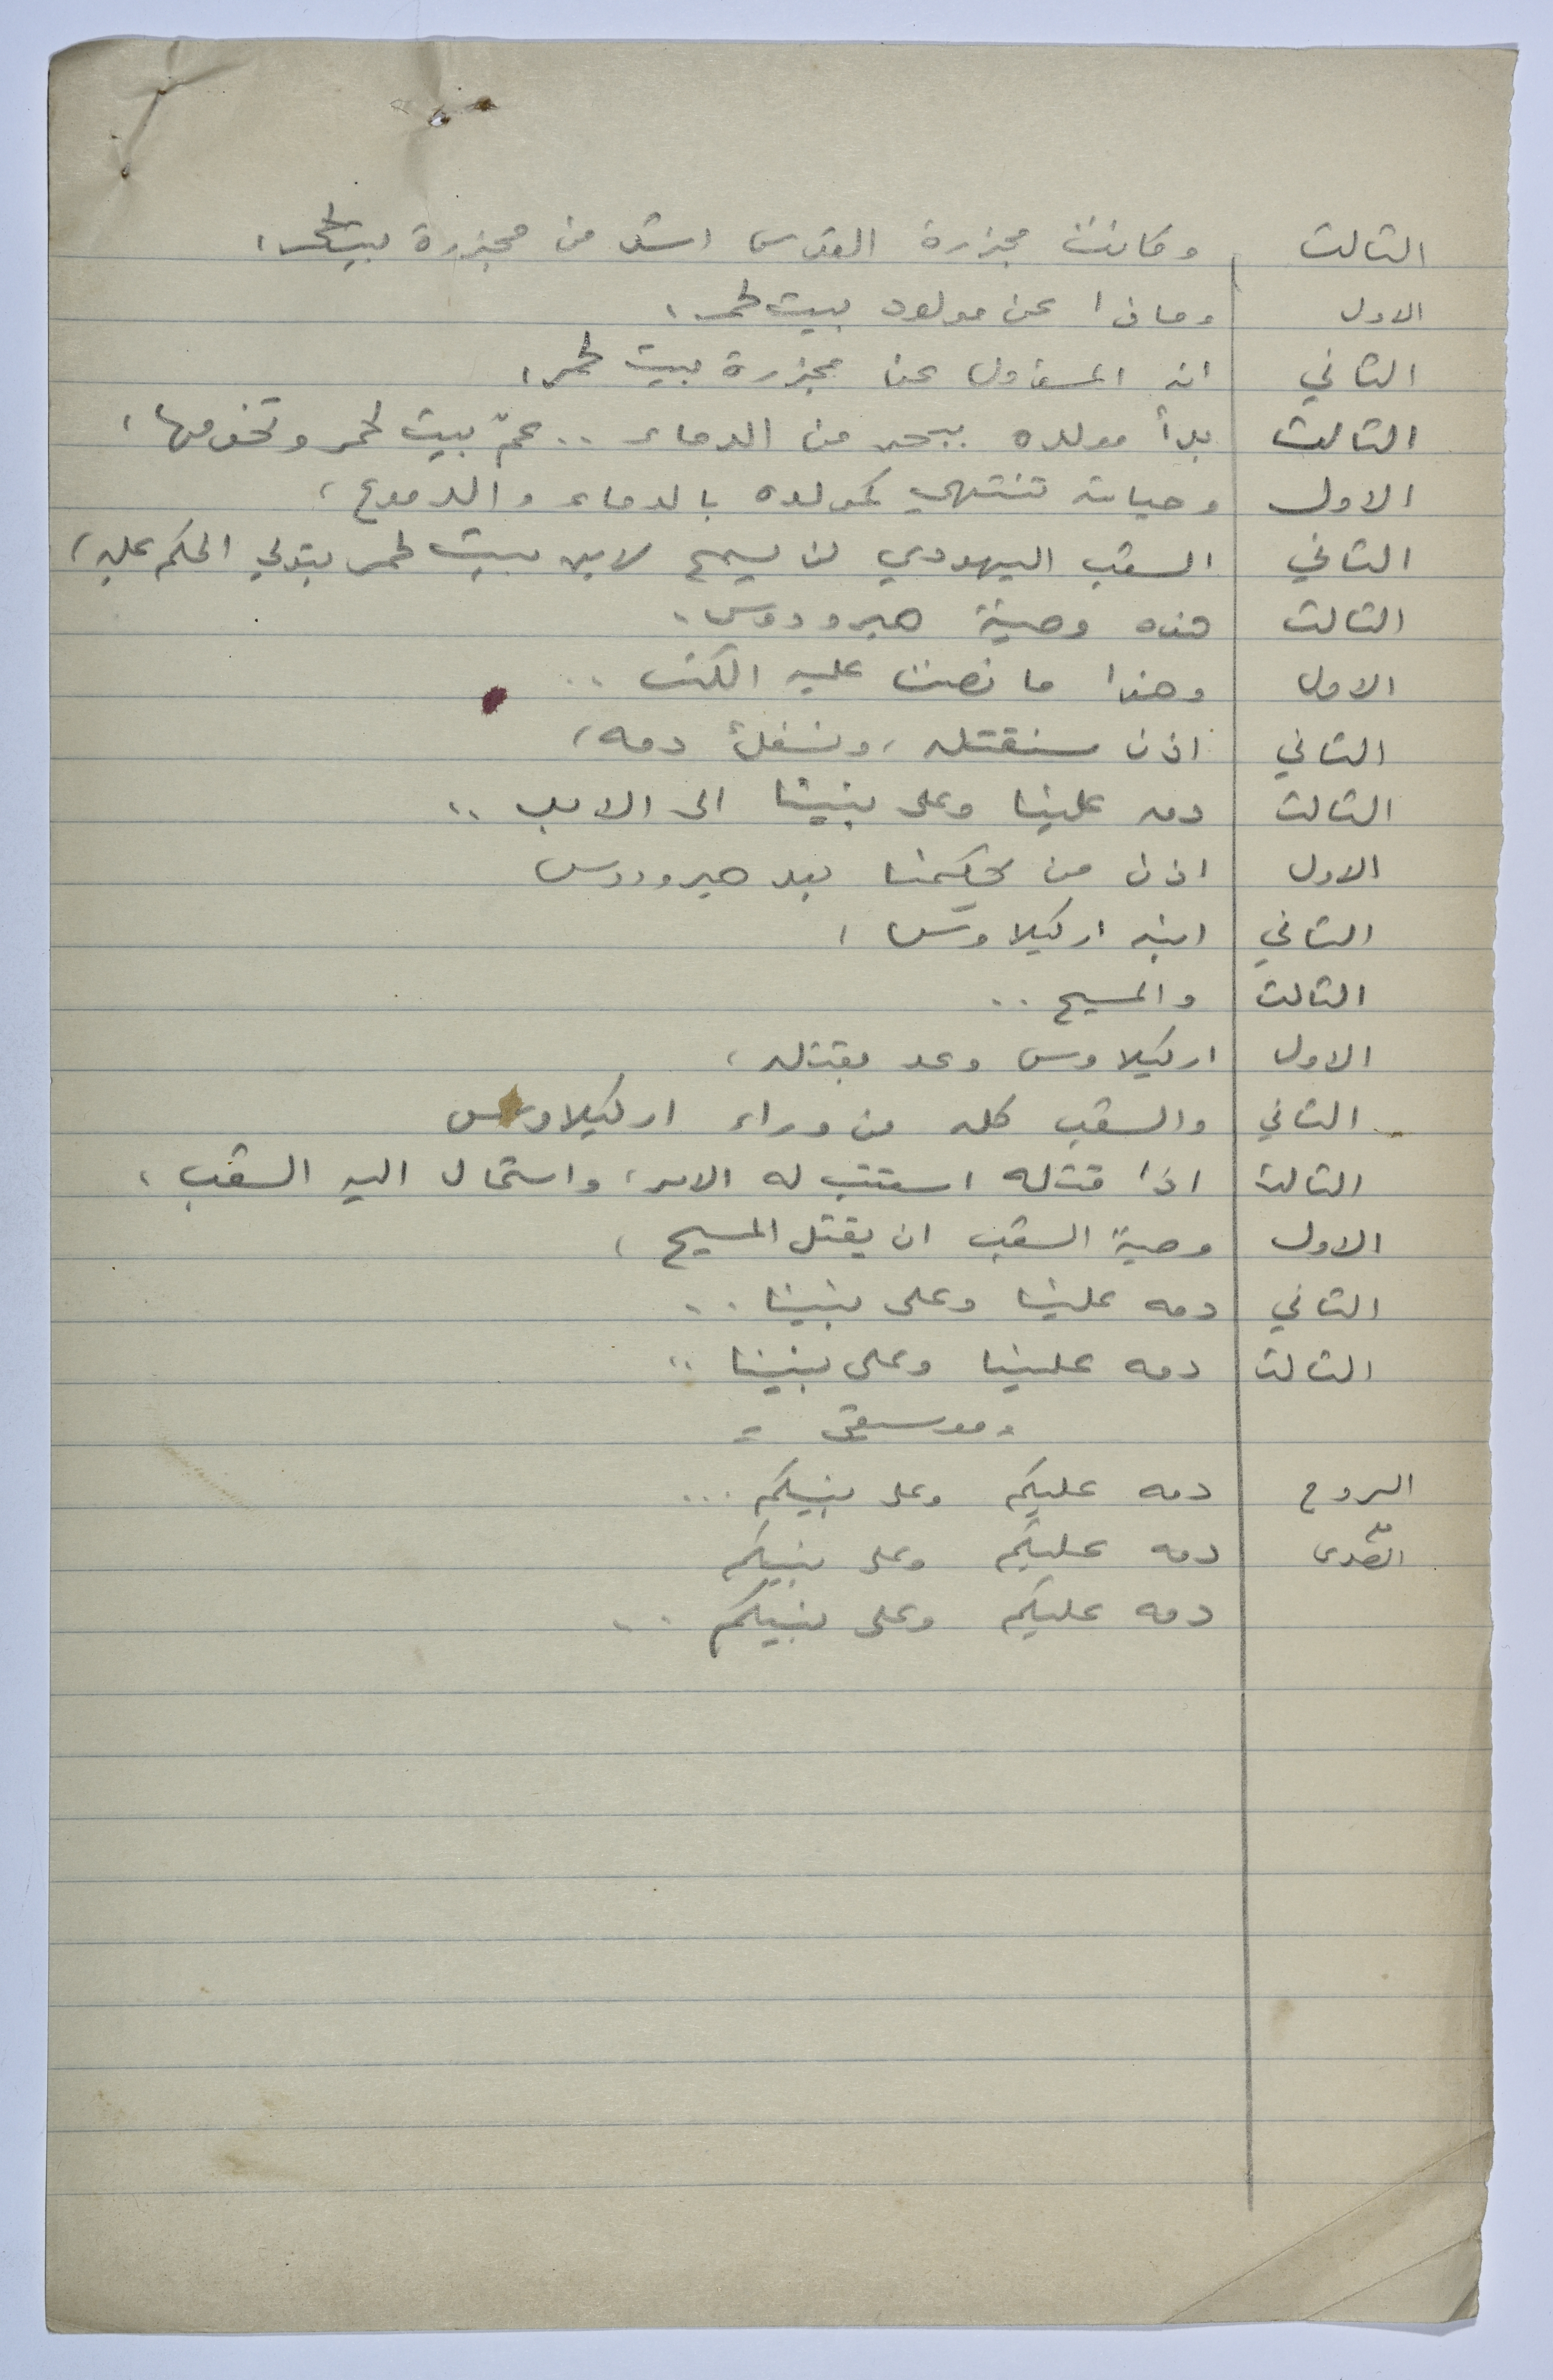 الثالث وكانت مجزرة القدس اشد من مجزرة بيت لحم ،
الاول وماذا عن مولود بيت لحم ،
الثاني انه المسؤول عن مجزرة بيت لحم ،
الثالث بدأ مولده ببحر من الدماء .. عمّ بيت لحم وتخومها ،
الاول وحياته تنتهي كمولده بالدماء والدموع ،
الثاني الشعب اليهودي لن يسمح لابن بيت لحم بتولي الحكم عليه ،
الثالث هذه وصية هيرودوس .
الاول وهذا ما نصت عليه الكتب ..
الثاني اذن سنقتله ، دمه ،
الثالث دمه علينا وعلى بنينا الى الابد ..
الاول اذن من يحكمنا بعد هيرودوس
الثاني ابنه اركيلاوس ،
الثالث والمسيح ..
الاول اركيلاوس وعد بقتله ،
الثاني والشعب كله من وراء اركيلاوس
الثالث اذا قتله استتب له الامر ، واستمال اليه الشعب ،
الاول وصية الشعب ان يقتل المسيح ،
الثاني دمه علينا وعلى بنينا ..
الثالث دمه علينا وعلى بنينا ..
= موسقى =
الروح دمه عليكم وعلى بنيكم ...
الصدى دمه عليكم وعلى بنيكم
دمه عليكم وعلى بنيكم ..